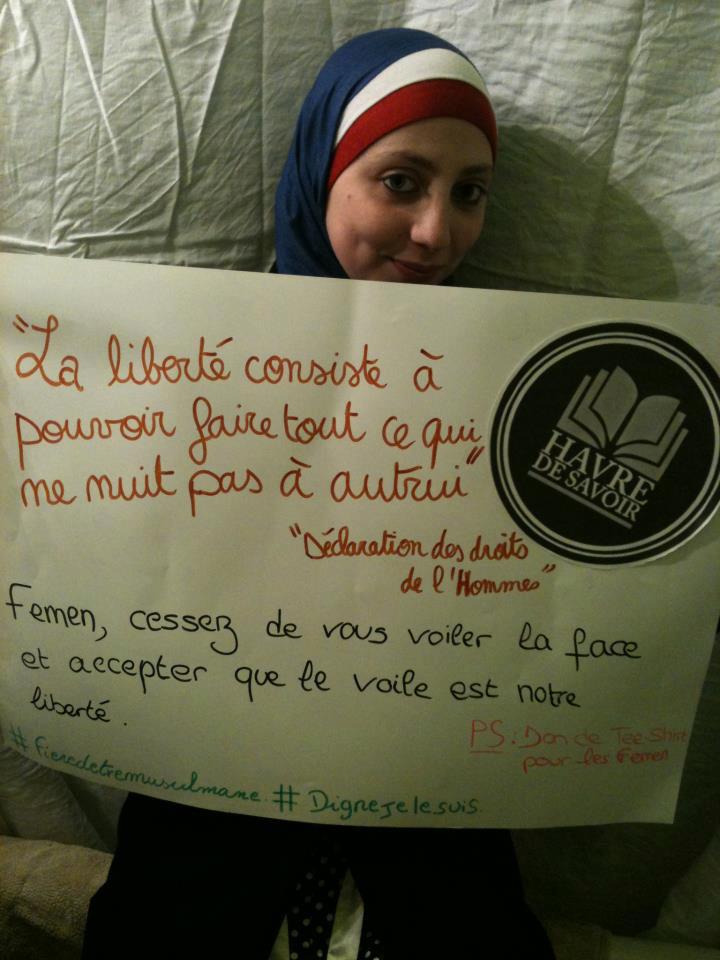 "La liberté consiste à
pouvoir faire tout ce qui
ne nuit pas à autrui"
HAVRE
DE SAVOIR
"Déclaration des droits
de l'Hommes"
Femen, cessez de vous voiler la face
et accepter que le voile est notre
liberté.
PS: Don de Tee-Shirt
pour les Femen
#fieredetremusulmane. # Dignejelesuis.